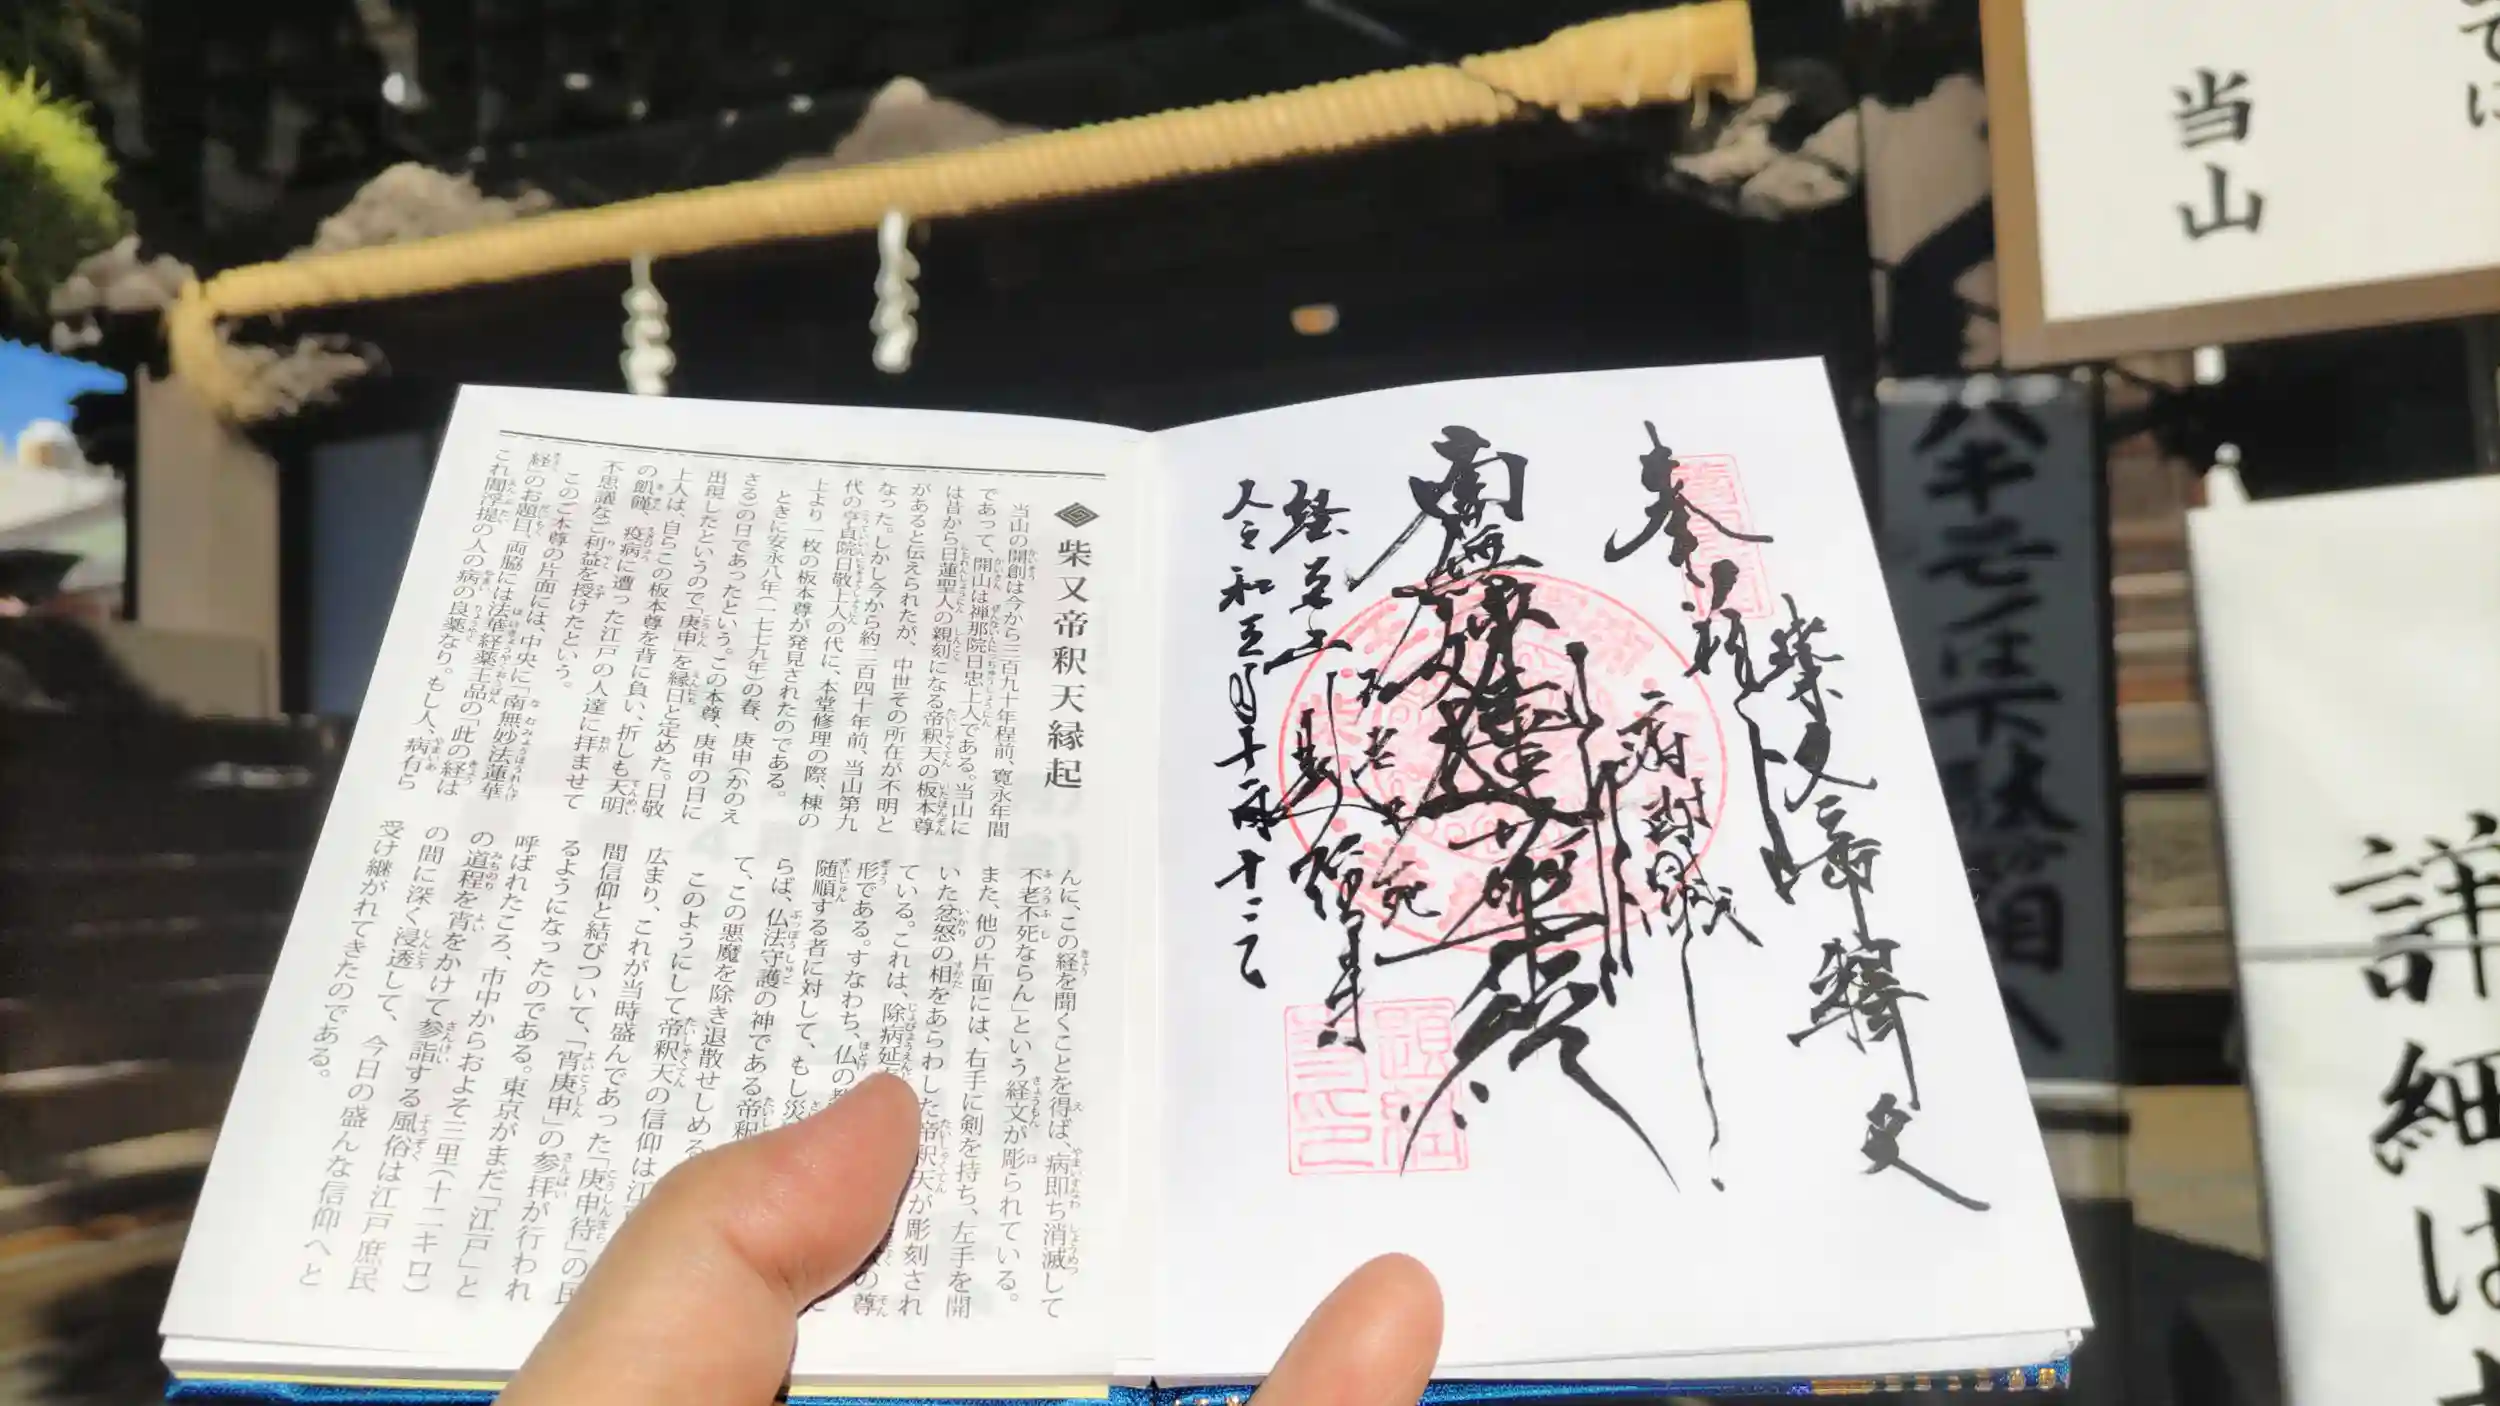 柴又帝釈天縁起
当山の開創は今から三百九十年程前、寛永年間
であって、開山は禅那院日忠上人である。当山に
は昔から日蓮聖人の親刻になる帝釈天の板本尊
があると伝えられたが、中世その所在が不明と
なった。しかし今から約二百四十年前、当山第九
代の亨貞院日敬上人の代に、本堂修理の際、棟の
上より一枚の板本尊が発見されたのである。
ときに安永八年(一七七九年)の春、庚申(かのえ
さる)の日であったという。この本尊、庚申の日に
出現したというので「庚申」を縁日と定めた。日敬
上人は、自らこの板本尊を背に負い、折しも天明
の飢饉、疫病に遭った江戸の人達に拝ませて
不思議なご利益を授けたという。
このご本尊の片面には、中央に「南無妙法蓮華
経」のお題目、両脇には法華経薬王品の「此の経は
これ閻浮提の人の病の良薬なり。もし人、病有ら
んに、この経を聞くことを得ば、病即ち消滅して
不老不死ならん」という経文が彫られている。
また、他の片面には、右手に剣を持ち、左手を開
いた忿怒の相をあらわした帝釈天が彫刻され
ている。これは、除病延
の尊
形である。すなわち、仏の教
随順する者に対して、もし災
らば、仏法守護の神である帝釈
て、この悪魔を除き退散せしめる
このようにして帝釈天の信仰は江
広まり、これが当時盛んであった「庚申待」の民
間信仰と結びついて、「宵庚申」の参拝が行われ
るようになったのである。東京がまだ「江戸」と
呼ばれたころ、市中からおよそ三里(十二キロ)
の道程を宵をかけて参詣する風俗は江戸庶民
の間に深く浸透して、今日の盛んな信仰へと
受け継がれてきたのである。
奉
柴又帝釋天
南無妙法蓮華経
経栄山
題経寺
当山
詳細は